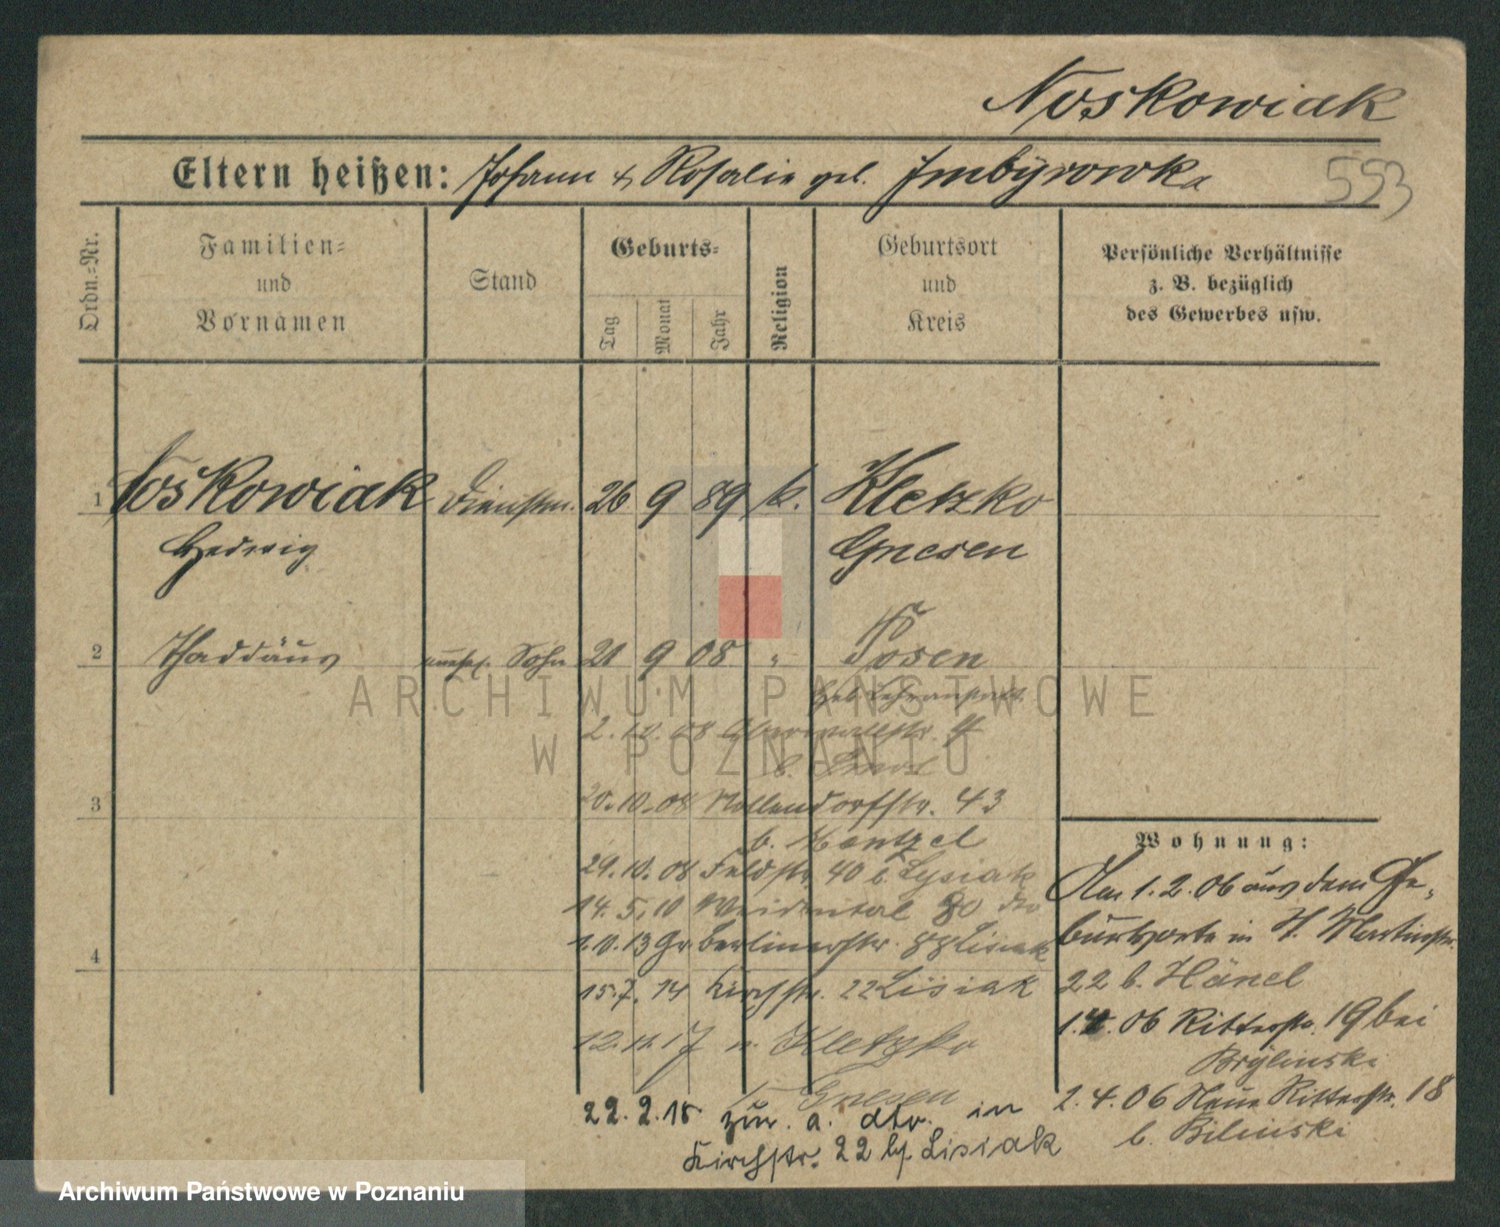 Noskowiak
Eltern heißen: Johann & Rosalie geb. Imbÿrowka
553
Ordn.-Nr.
Familien- und Vornamen
Stand
Geburts-
Tag
Monat
Jahr
Religion
Geburtsort und Kreis
Persönliche Verhältnisse z. B. bezüglich des Gewerbes usw.
1 Noskowiak Dienstm. 26 9 89 k. Kletzko
Hedwig Gnesen
2 Thaddäus Sohn 21 9 08 " Posen
2.10.08 9
3 20.10.08 Nollendorfstr. 43
b. Hantzel
29.10.08 Feldstr. 40 b. Lysiak
14.5.10 do
1.10.13 Gr. Berlinerstr. 88 Lisiak
4
15.7.14 Kirchstr. 22 Lisiak
12.11.17 n. Kletzko
Gnesen
22.2.18 zur. a. dto. in
Kirchstr. 22 bei Lisiak
Wohnung:
Am 1.2.06 aus dem Ge-
burtsorte in St. Martinstr.
22 b. Hänel
1.4.06 Ritterstr. 19 bei
Brÿlinski
2.4.06 Neue Ritterstr. 18
b. Bilinski
ARCHIWUM PAŃSTWOWE
W POZNANIU
Archiwum Państwowe w Poznaniu